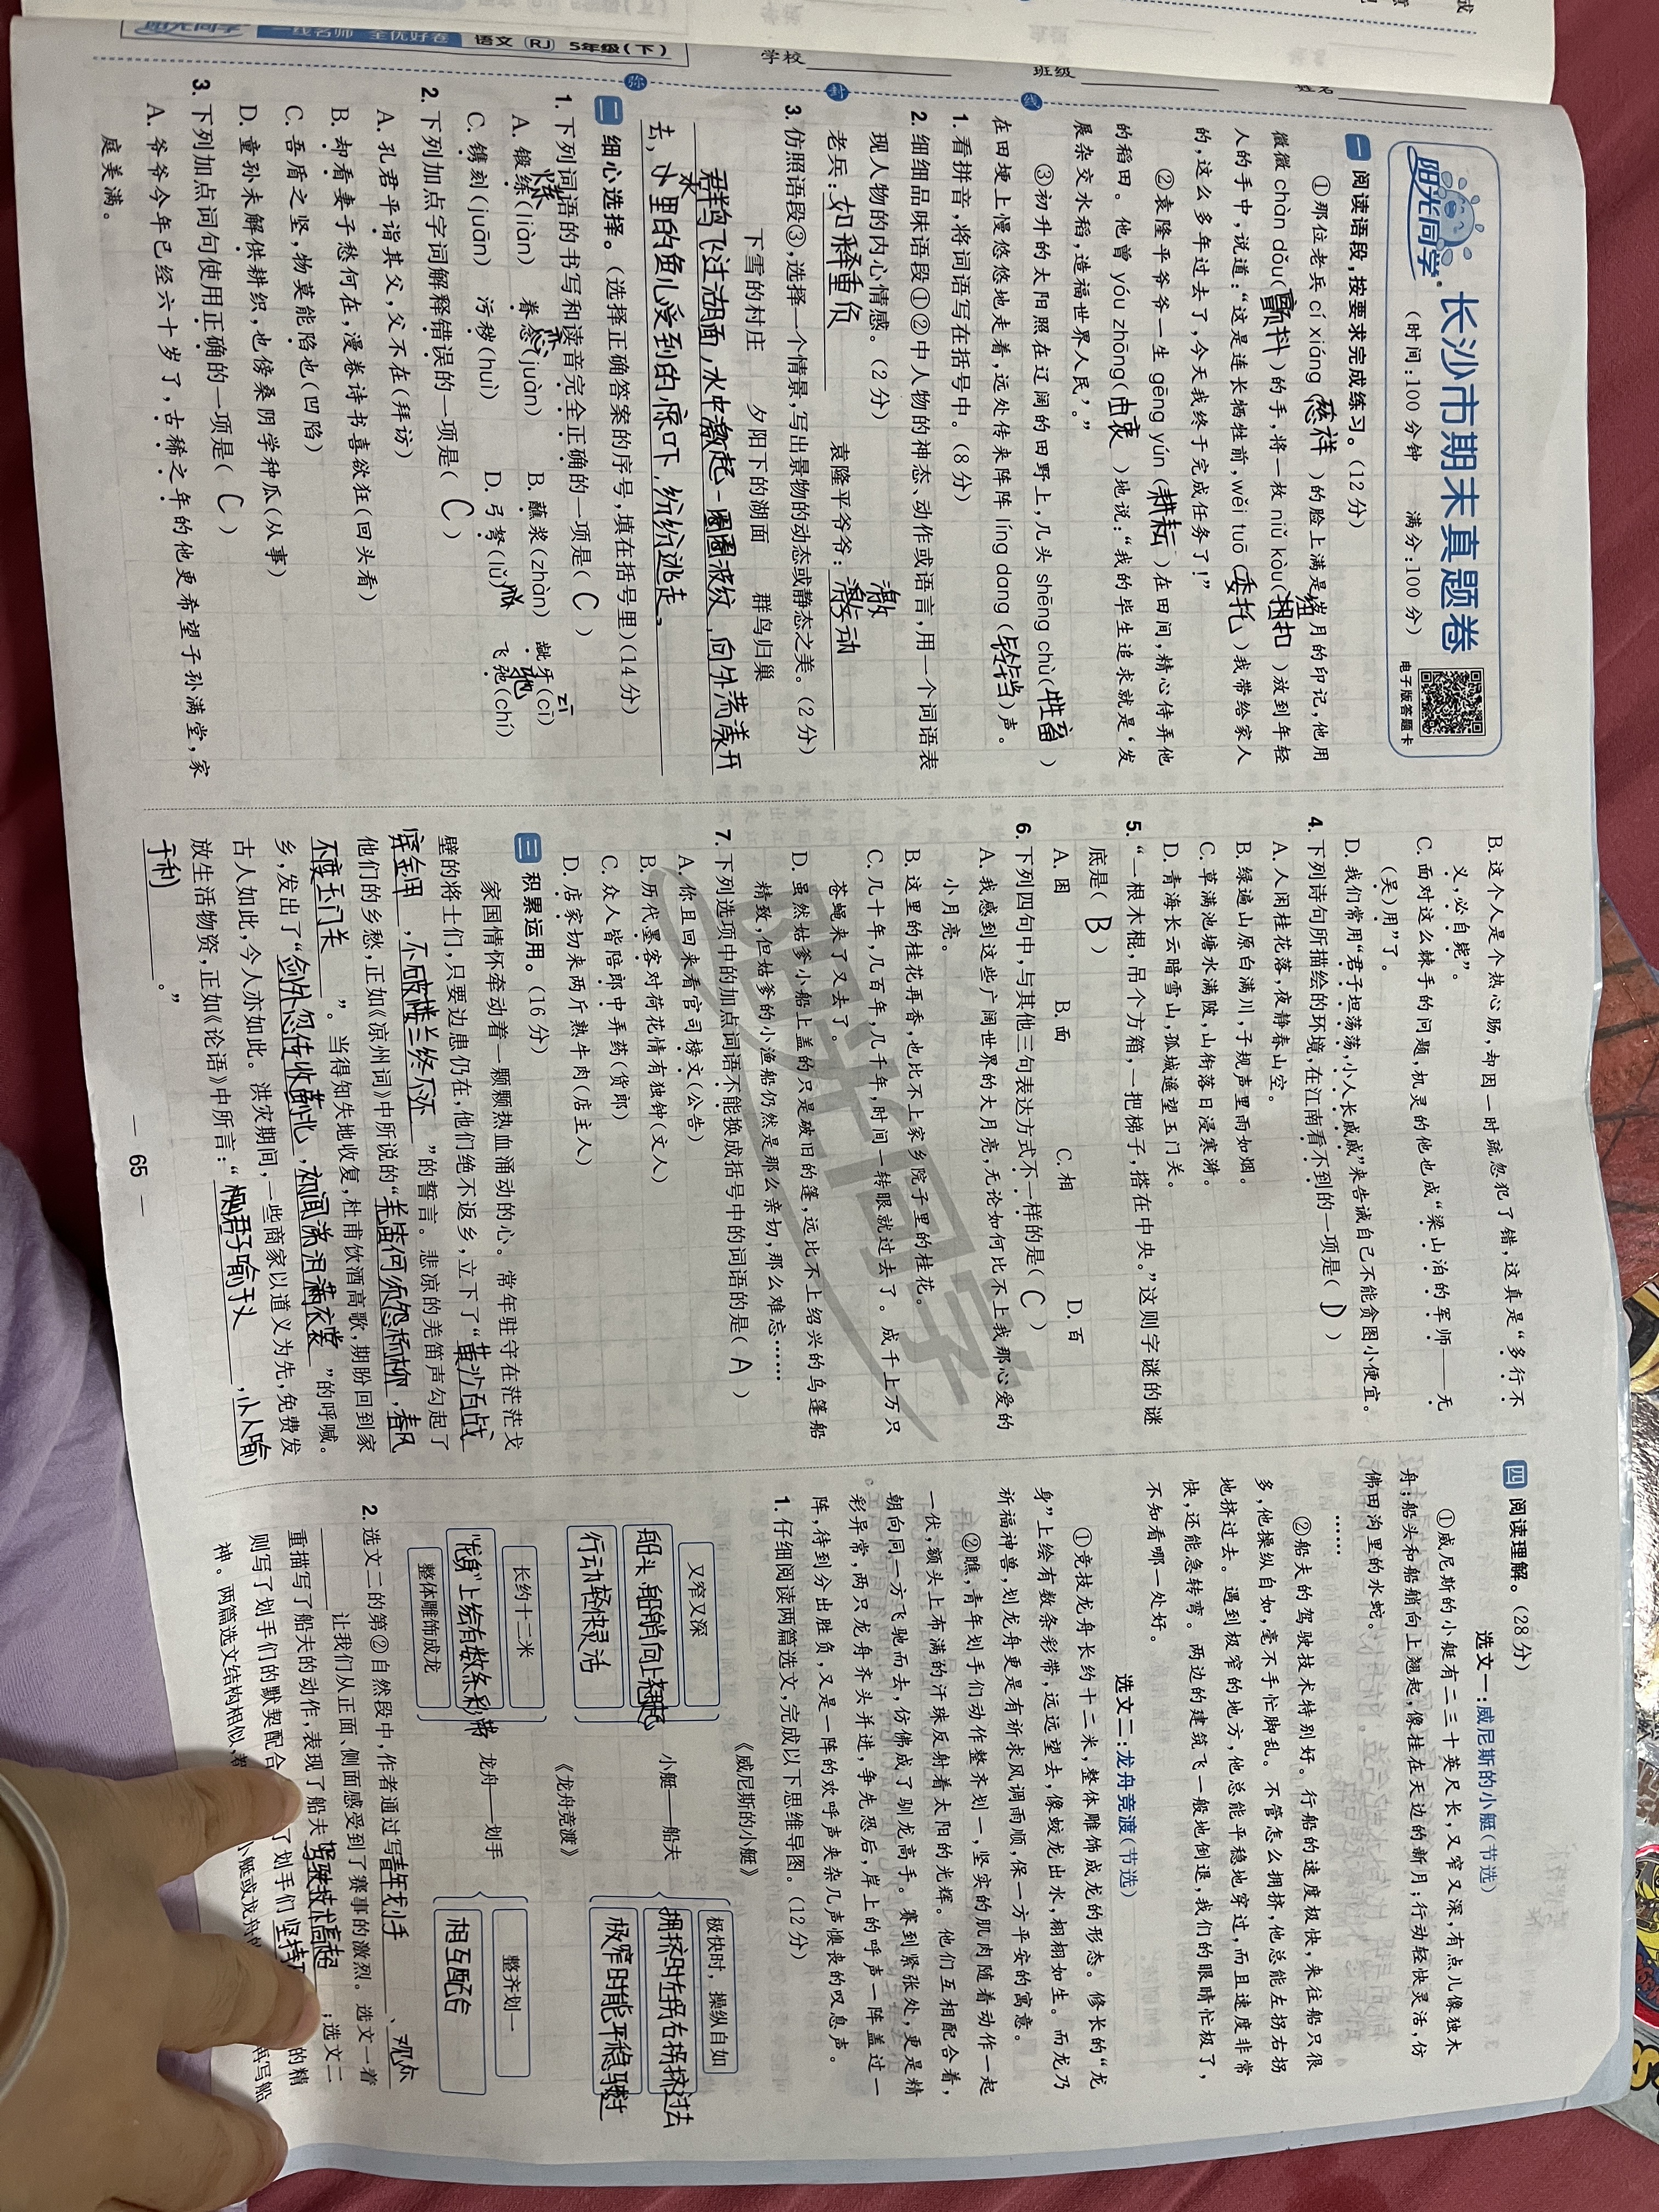 阳光同学 一线名师 全优好卷 语文 (RJ) 5年级(下)
学校 班级 姓名
阳光同学
长沙市期末真题卷
(时间:100分钟 满分:100分)
电子版答题卡
一 阅读语段,按要求完成练习。(12分)
①那位老兵 cí xiáng(慈祥)的脸上满是岁月的印记,他用
微微 chàn dǒu(颤抖)的手,将一枚 niǔ kòu(扭扣)放到年轻
纽
人的手中,说道:“这是连长牺牲前,wěi tuō(委托)我带给家人
的,这么多年过去了,今天我终于完成任务了!”
②袁隆平爷爷一生 gēng yún(耕耘)在田间,精心侍弄他
的稻田。他曾 yóu zhōng(由衷)地说:“我的毕生追求就是‘发
展杂交水稻,造福世界人民’。”
③初升的太阳照在辽阔的田野上,几头 shēng chù(牲畜)
在田埂上慢悠悠地走着,远处传来阵阵 líng dang(铃铛)声。
1. 看拼音,将词语写在括号中。(8分)
2. 细细品味语段①②中人物的神态、动作或语言,用一个词语表
现人物的内心情感。(2分)
激
老兵:如释重负 袁隆平爷爷:激动
3. 仿照语段③,选择一个情景,写出景物的动态或静态之美。(2分)
下雪的村庄 夕阳下的湖面 群鸟归巢
群鸟飞过湖面,水中激起一圈圈波纹,向外荡漾开
水
去,水里的鱼儿受到的惊吓,纷纷逃走。
二 细心选择。(选择正确答案的序号,填在括号里)(14分)
1. 下列词语的书写和读音完全正确的一项是( C )
A. 锻练(liàn) 眷恋(juàn) B. 蘸浆(zhàn) 龇牙(cī)
C. 镌刻(juān) 污秽(huì) D. 弓弩(lǔ) 飞弛(chí)
2. 下列加点字词解释错误的一项是( C )
A. 孔君平诣其父,父不在(拜访)
B. 却看妻子愁何在,漫卷诗书喜欲狂(回头看)
C. 吾盾之坚,物莫能陷也(凹陷)
D. 童孙未解供耕织,也傍桑阴学种瓜(从事)
3. 下列加点词句使用正确的一项是( C )
A. 爷爷今年已经六十岁了,古稀之年的他更希望子孙满堂,家
庭美满。
B. 这个人是个热心肠,却因一时疏忽犯了错,这真是“多行不
义,必自毙”。
C. 面对这么棘手的问题,机灵的他也成“梁山泊的军师——无
(吴)用”了。
D. 我们常用“君子坦荡荡,小人长戚戚”来告诫自己不能贪图小便宜。
4. 下列诗句所描绘的环境,在江南看不到的一项是( D )
A. 人闲桂花落,夜静春山空。
B. 绿遍山原白满川,子规声里雨如烟。
C. 草满池塘水满陂,山衔落日浸寒漪。
D. 青海长云暗雪山,孤城遥望玉门关。
5. “一根木棍,吊个方箱,一把梯子,搭在中央。”这则字谜的谜
底是( B )
A. 困 B. 面 C. 相 D. 百
6. 下列四句中,与其他三句表达方式不一样的是( C )
A. 我感到这些广阔世界的大月亮,无论如何比不上我那心爱的
小月亮。
B. 这里的桂花再香,也比不上家乡院子里的桂花。
C. 几十年,几百年,几千年,时间一转眼就过去了。成千上万只
苍蝇来了又去了。
D. 虽然姑爹小船上盖的只是破旧的篷,远比不上绍兴的乌篷船
精致,但姑爹的小渔船仍然是那么亲切,那么难忘……
7. 下列选项中的加点词语不能换成括号中的词语的是( A )
A. 你且回来看官司榜文(公告)
B. 历代墨客对荷花情有独钟(文人)
C. 众人皆陪郎中弄药(货郎)
D. 店家切来两斤熟牛肉(店主人)
三 积累运用。(16分)
家国情怀牵动着一颗颗热血涌动的心。常年驻守在茫茫戈
壁的将士们,只要边患仍在,他们绝不返乡,立下了“黄沙百战
穿金甲,不破楼兰终不还”的誓言。悲凉的羌笛声勾起了
他们的乡愁,正如《凉州词》中所说的“羌笛何须怨杨柳,春风
不度玉门关”。当得知失地收复,杜甫饮酒高歌,期盼回到家
乡,发出了“剑外忽传收蓟北,初闻涕泪满衣裳”的呼喊。
古人如此,今人亦如此。洪灾期间,一些商家以道义为先,免费发
放生活物资,正如《论语》中所言:“君子喻于义,小人喻
于利。”
— 65 —
四 阅读理解。(28分)
选文一:威尼斯的小艇(节选)
①威尼斯的小艇有二三十英尺长,又窄又深,有点儿像独木
舟;船头和船艄向上翘起,像挂在天边的新月;行动轻快灵活,仿
佛田沟里的水蛇。
……
②船夫的驾驶技术特别好。行船的速度极快,来往船只很
多,他操纵自如,毫不手忙脚乱。不管怎么拥挤,他总能左拐右拐
地挤过去。遇到极窄的地方,他总能平稳地穿过,而且速度非常
快,还能急转弯。两边的建筑飞一般地倒退,我们的眼睛忙极了,
不知看哪一处好。
选文二:龙舟竞渡(节选)
①竞技龙舟长约十二米,整体雕饰成龙的形态。修长的“龙
身”上绘有数条彩带,远远望去,像蛟龙出水,栩栩如生。而龙乃
祈福神兽,划龙舟更是有祈求风调雨顺,保一方平安的寓意。
②瞧,青年划手们动作整齐划一,坚实的肌肉随着动作一起
一伏,额头上布满的汗珠反射着太阳的光辉。他们互相配合着,
朝向同一方飞驰而去,仿佛成了驯龙高手。赛到紧张处,更是精
彩异常,两只龙舟齐头并进,争先恐后,岸上的呼声一阵盖过一
阵,待到分出胜负,又是一阵的欢呼声夹杂几声懊丧的叹息声。
1. 仔细阅读两篇选文,完成以下思维导图。(12分)
《威尼斯的小艇》
又窄又深
船头、船艄向上翘起
行动轻快灵活
小艇——船夫
极快时,操纵自如
拥挤时左拐右拐挤过去
极窄时能平稳穿过
《龙舟竞渡》
长约十二米
“龙身”上绘有数条彩带
整体雕饰成龙
龙舟——划手
整齐划一
相互配合
2. 选文二的第②自然段中,作者通过写青年划手、观众
让我们从正面、侧面感受到了赛事的激烈。选文一着
重描写了船夫的动作,表现了船夫驾驶技术高超;选文二
则写了划手们的默契配合,了划手们坚持的精
神。两篇选文结构相似、小艇或龙舟再写船